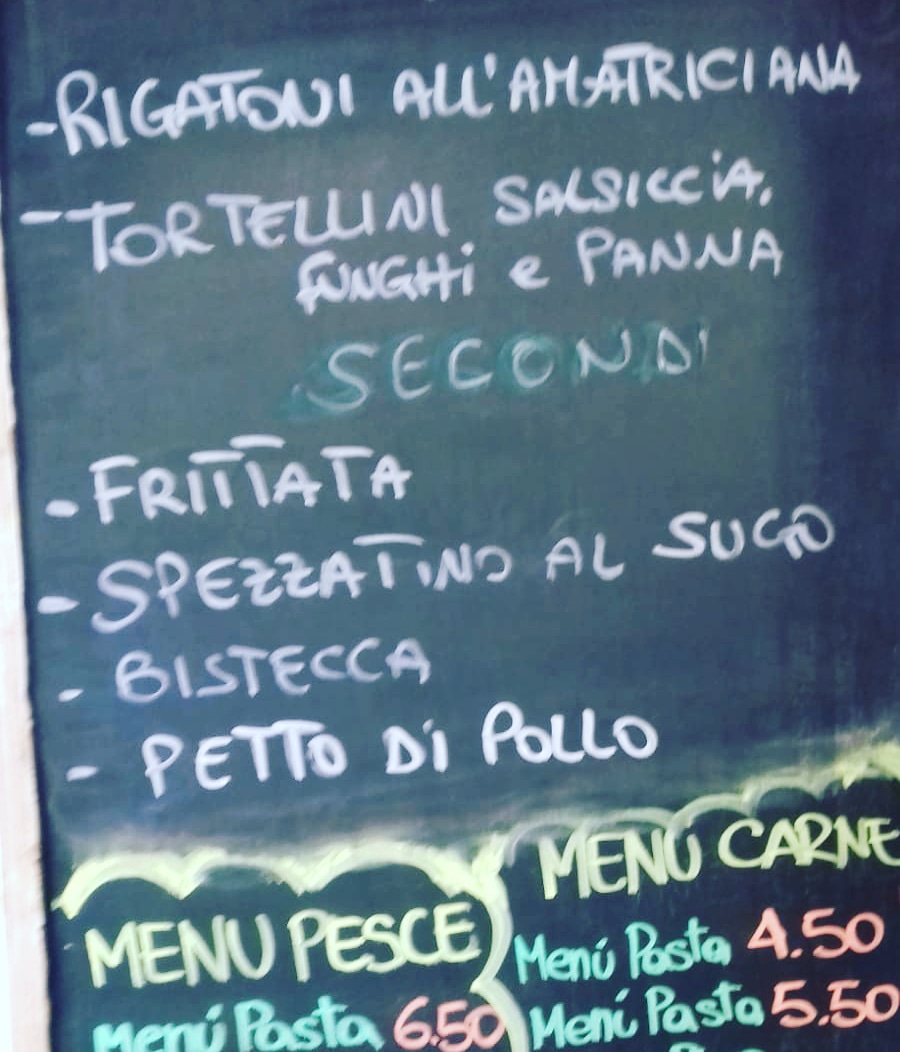 - RIGATONI ALL'AMATRICIANA
- TORTELLINI SALSICCIA,
FUNGHI e PANNA
SECONDI
- FRITTATA
- SPEZZATINO AL SUGO
- BISTECCA
- PETTO Di POLLO
MENU CARNE
MENU PESCE
Menú Pasta 4.50
Menú Pasta 5.50
Menú Pasta 6.50